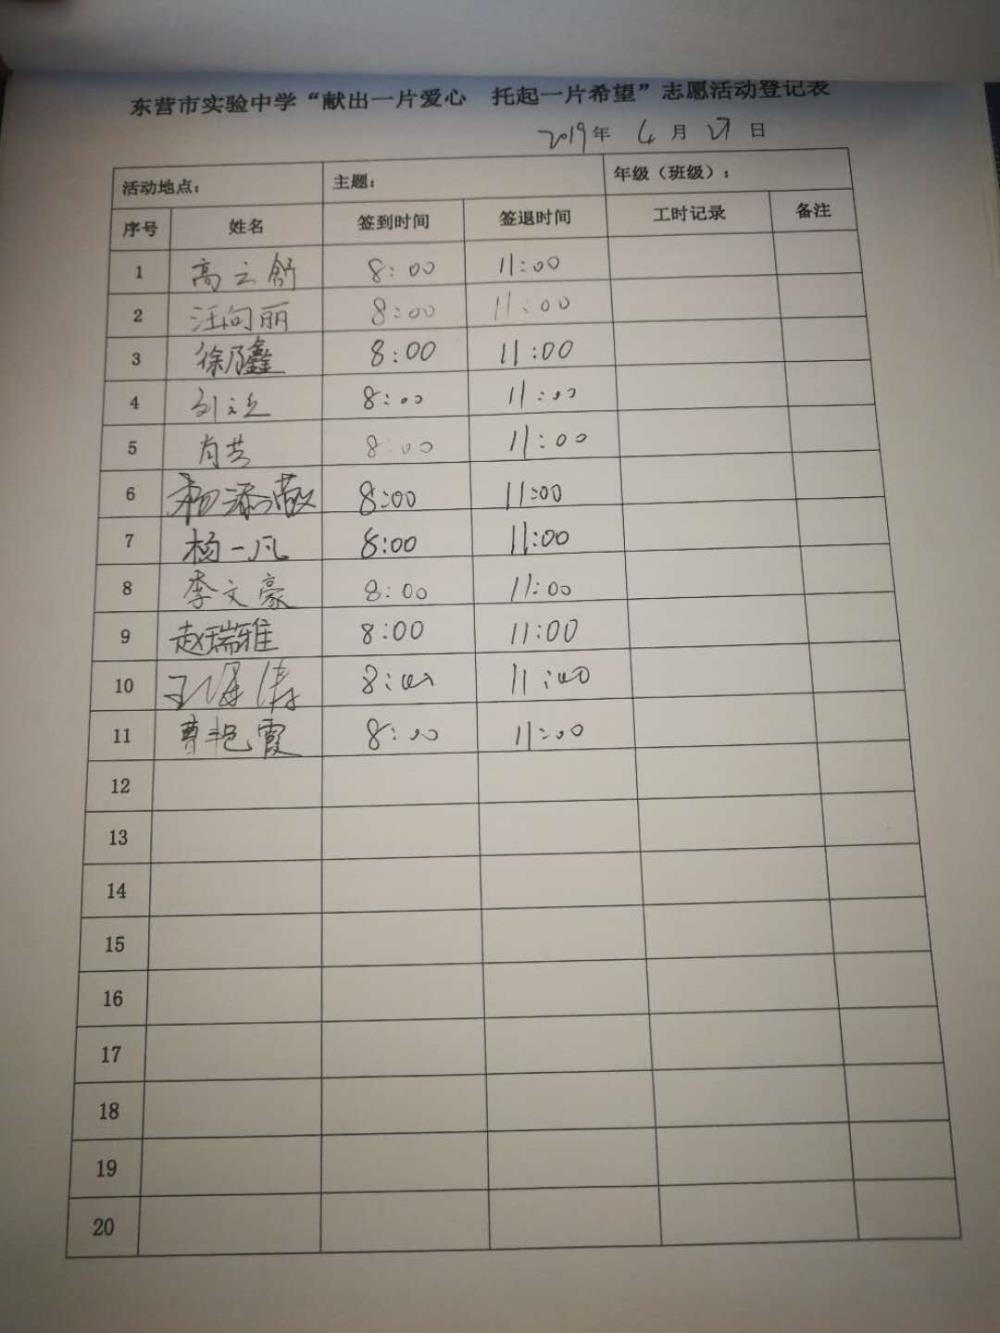 东营市实验中学“献出一片爱心 托起一片希望”志愿活动登记表
2019年 4月 27日
活动地点： 主题： 年级（班级）：
序号 姓名 签到时间 签退时间 工时记录 备注
1 高云舒 8:00 11:00
2 汪向丽 8:00 11:00
3 徐乃鑫 8:00 11:00
4 8:00 11:00
5 肖芸 8:00 11:00
6 8:00 11:00
7 杨一凡 8:00 11:00
8 李文豪 8:00 11:00
9 赵瑞雅 8:00 11:00
10 8:00 11:00
11 曹艳霞 8:00 11:00
12
13
14
15
16
17
18
19
20